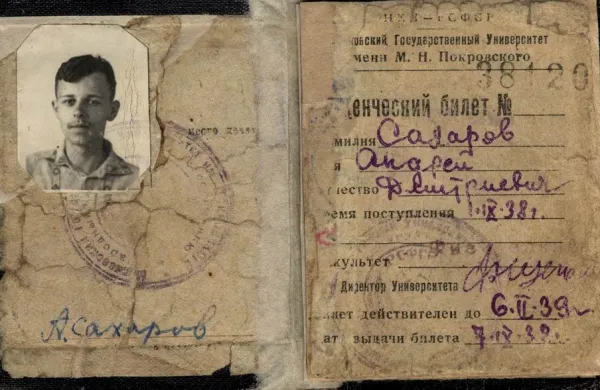 место печати
А. Сахаров
НКП–РСФСР
ковский Государственный Университет
имени М. Н. Покровского
38120
денческий билет №
милия Сахаров
я Андрей
чество Дмитриевич
ремя поступления 1·IX·38г.
культет
Директор Университета
лет действителен до 6.II-39г.
ата выдачи билета 7·IX·38г.